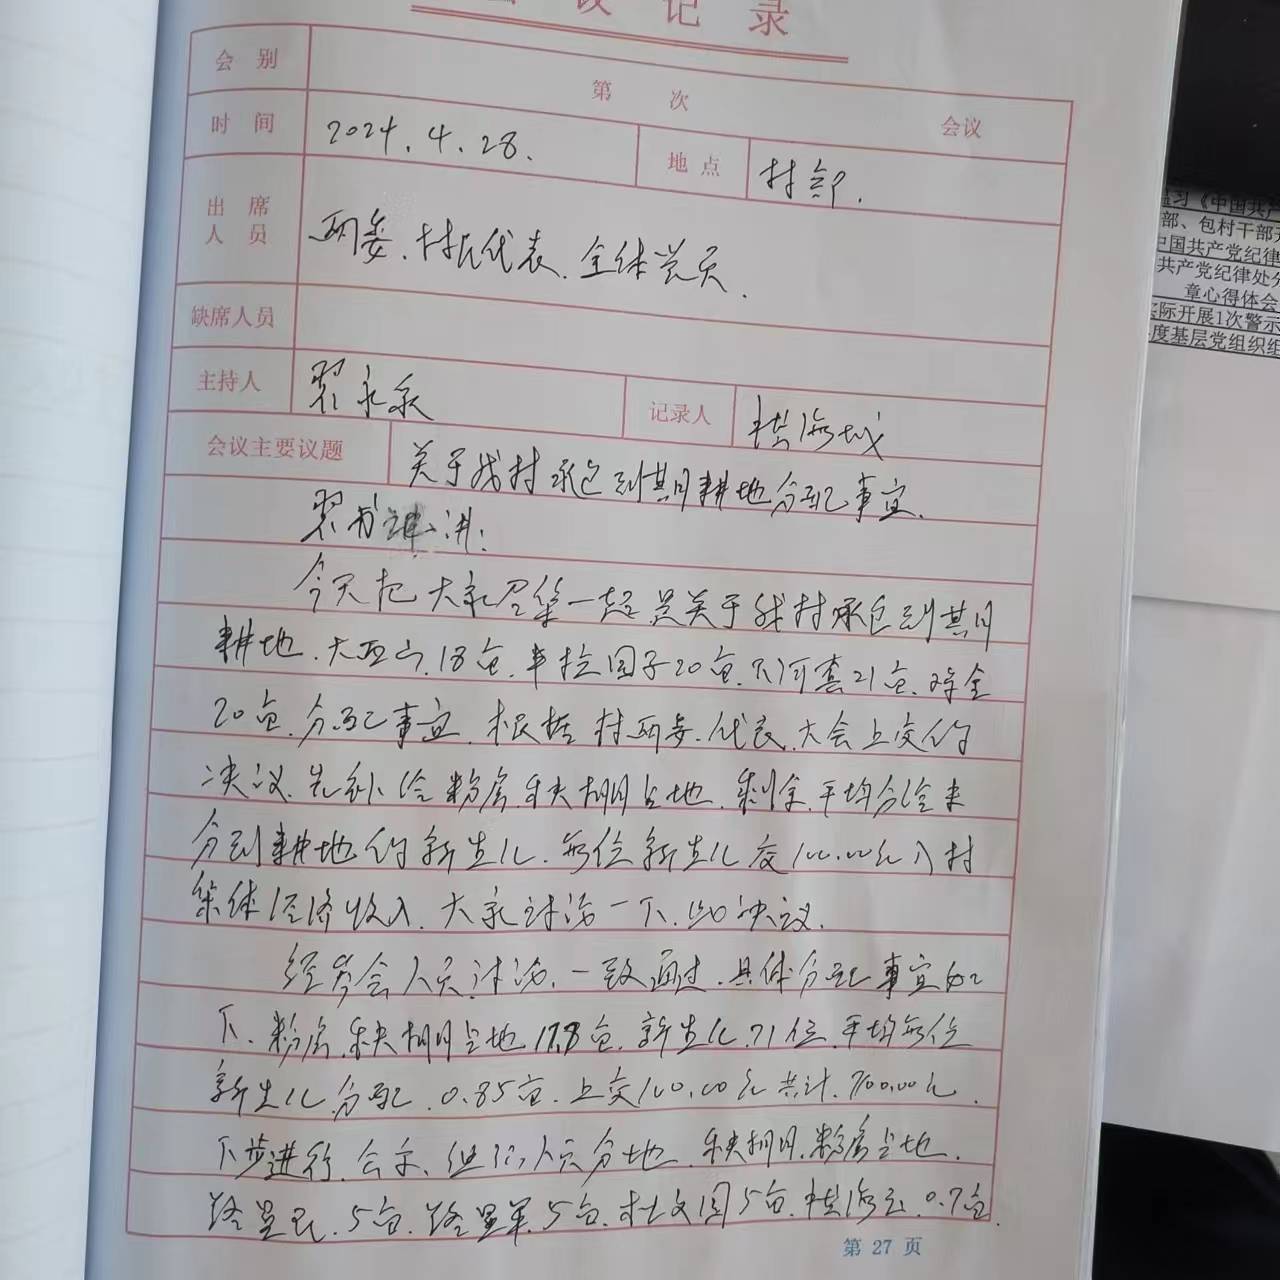 议 记 录
会 别 第 次 会议
时 间 2024.4.28. 地 点 村部.
出 席 人 员 两委、村民代表、全体党员.
缺席人员
主持人 永 记录人 海成
会议主要议题 关于我村承包到期耕地分配事宜.
书记讲:
今天把大家召集一起是关于我村承包到期
耕地、大西 18亩、园子20亩、河套21亩、
20亩、分配事宜、根据村两委、代表、大会上交的
决议、先补给粉房秧棚占地、剩余平均分给未
分到耕地的新生儿、每位新生儿交100.00元入村
集体经济收入、大家讨论一下、此决议.
经与会人员讨论、一致通过、具体分配事宜如
下、粉房、秧棚占地17.8亩、新生儿71位、平均每位
新生儿分配 0.85亩、上交100.00元共计 元.
下步进行、公示、组织人员分地、秧棚、粉房占地、
5亩、 5亩、杜文国5亩、 海 0.7亩.
第 27 页
习《中国共产
部、包村干部
中国共产党纪律
共产党纪律处分
章心得体会
实际开展1次警示
度基层党组织组